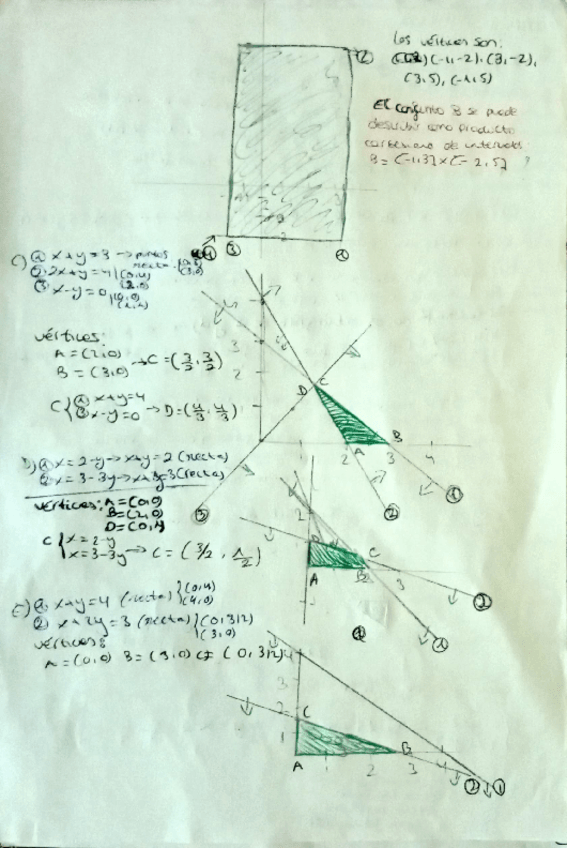 Los vértices son:
(-1,-2), (3,-2),
(3,5), (-1,5)
El conjunto B se puede
describir como producto
cartesiano de intervalos
B = [-1,3] x [-2,5]
②
④ ③ ①
C) ① x+y=3 → puntos
recta (0,3)
(3,0)
② 2x+y=4 (0,4)
(2,0)
③ x-y=0 (0,0)
vértices:
A = (2,0) → C = (3/2, 3/2)
B = (3,0)
C { x+y=4
③ x-y=0 → D = (4/3, 4/3)
3
2
D C
A B
1 2 3 4
③ ② ①
D) ① x=2-y → x+y=2 (recta)
② x=3-3y → x+3y=3 (recta)
vértices: A=(0,0)
B=(2,0)
D=(0,1)
C { x=2-y
x=3-3y → C = (3/2, 1/2)
2
D C
A B 3
② ①
E) ① x+y=4 (recta) { (0,4)
(4,0)
② x+2y=3 (recta) { (0,3/2)
(3,0)
vértices:
A=(0,0) B=(3,0) C= (0,3/2)
4
3
2
C
1
B
A 1 2 3 4
② ①